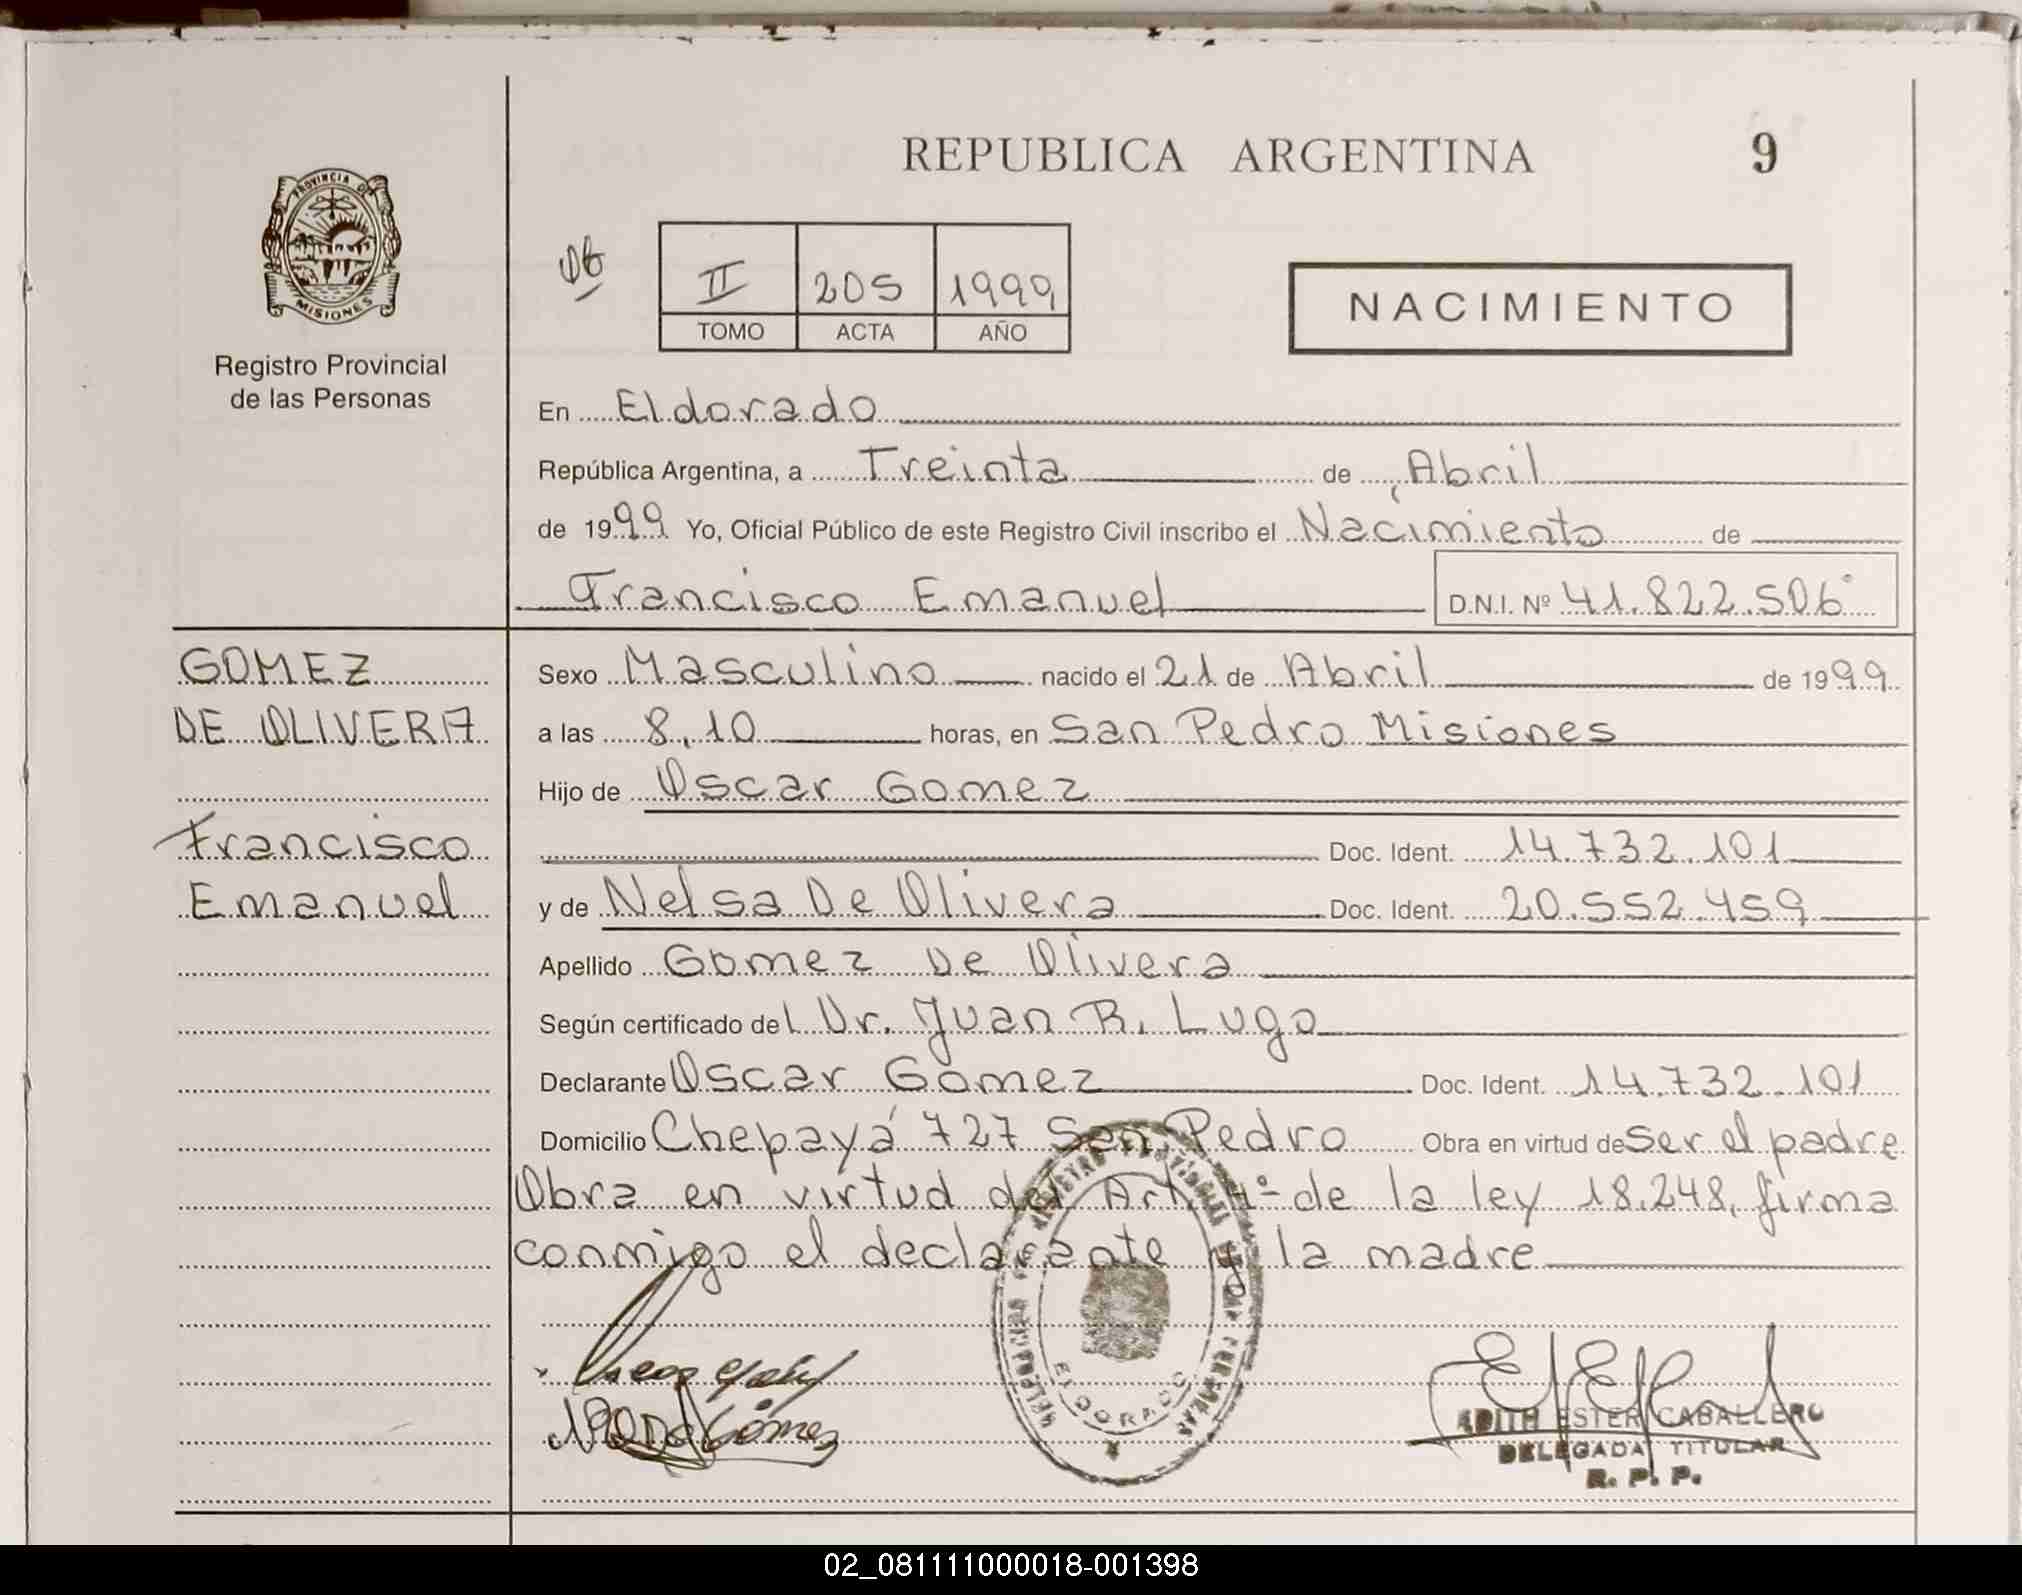 REPUBLICA ARGENTINA
9
PROVINCIA DE
MISIONES
Registro Provincial
de las Personas
II 205 1999
TOMO ACTA AÑO
NACIMIENTO
En Eldorado
República Argentina, a Treinta de Abril
de 1999 Yo, Oficial Público de este Registro Civil inscribo el Nacimiento de
Francisco Emanuel D.N.I. Nº 41.822.506
GOMEZ
DE OLIVERA
Francisco
Emanuel
Sexo Masculino nacido el 21 de Abril de 1999
a las 8,10 horas, en San Pedro Misiones
Hijo de Oscar Gomez
Doc. Ident. 14.732.101
y de Nelsa De Olivera Doc. Ident. 20.552.459
Apellido Gomez De Olivera
Según certificado del Dr. Juan R. Lugo
Declarante Oscar Gomez Doc. Ident. 14.732.101
Domicilio Chepayá 727 San Pedro Obra en virtud de ser el padre
Obra en virtud del Art. de la ley 18.248, firma
conmigo el declarante y la madre
ELDORADO
Gómez
EDITH ESTER CABALLERO
DELEGADA TITULAR
R. P. P.
02_081111000018-001398